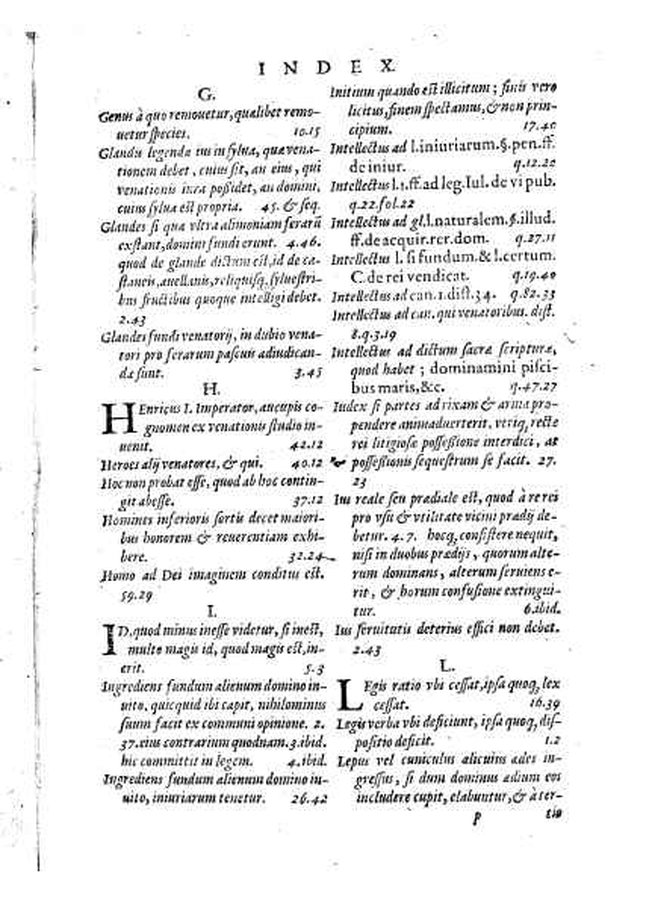 INDEX
G.
Genus à quo remouetur, quælibet remo-
uetur species. 10.15
Glandis legendæ ius in sylua, quæ vena-
tionem debet, cuius sit, an eius, qui
venationis iura possidet, an domini,
cuius sylua est propria. 45. & seq.
Glandes si qua vltra alimoniam ferarū
exstant, domini fundi erunt. 4.46.
quod de glande dictum est, id de ca-
staneis, auellanis, reliquisq; syluestri-
bus fructibus quoque intelligi debet.
2.43
Glandes fundi venatorij, in dubio vena-
tori pro ferarum pascuis adiudican-
dæ sunt. 3.45
H.
HEnricus I. Imperator, aucupis co-
gnomen ex venationis studio in-
uenit. 42.12
Heroes alij venatores, & qui. 40.12
Hoc non probat esse, quod ab hoc contin-
git abesse. 37.12
Homines inferioris sortis decet maiori-
bus honorem & reuerentiam exhi-
bere. 32.24
Homo ad Dei imaginem conditus est.
59.29
I.
ID, quod minus inesse videtur, si inest,
multo magis id, quod magis est, in-
erit. 5.3
Ingrediens fundum alienum domino in-
uito, quicquid ibi capit, nihilominus
suum facit ex communi opinione. 2.
37. eius contrarium quodnam. 3. ibid.
hic committit in legem. 4. ibid.
Ingrediens fundum alienum domino in-
uito, iniuriarum tenetur. 26.42
Initium quando est illicitum; finis vero
licitus, finem spectamus, & non prin-
cipium. 17.40
Intellectus ad l. iniuriarum. §. pen. ff.
de iniur. q.12.20
Intellectus l. 1. ff. ad leg. Iul. de vi pub.
q.22. fol. 22
Intellectus ad gl. l. naturalem. §. illud.
ff. de acquir. rer. dom. q.27.11
Intellectus l. si fundum. & l. certum.
C. de rei vendicat. q.19.40
Intellectus ad can. 1. dist. 34. q.82.33
Intellectus ad can. qui venatoribus. dist.
8. q.3.19
Intellectus ad dictum sacræ scripturæ,
quod habet; dominamini pisci-
bus maris, &c. q.47.27
Iudex si partes ad rixam & arma pro-
pendere animaduerterit, vtriq; recte
rei litigiosæ possessione interdici, at
possessionis sequestrum se facit. 27.
23
Ius reale seu prædiale est, quod à re rei
pro vsu & vtilitate vicini prædij de-
betur. 4.7. hocq; consistere nequit,
nisi in duobus prædijs, quorum alte-
rum dominans, alterum seruiens e-
rit, & horum confusione extingui-
tur. 6. ibid.
Ius seruitutis deterius effici non debet.
2.43
L.
LEgis ratio vbi cessat, ipsa quoq; lex
cessat. 16.39
Legis verba vbi deficiunt, ipsa quoq; dis-
positio deficit. 1.2
Lepus vel cuniculus alicuius ædes in-
gressus, si dum dominus ædium eos
includere cupit, elabuntur, & à ter-
p tio